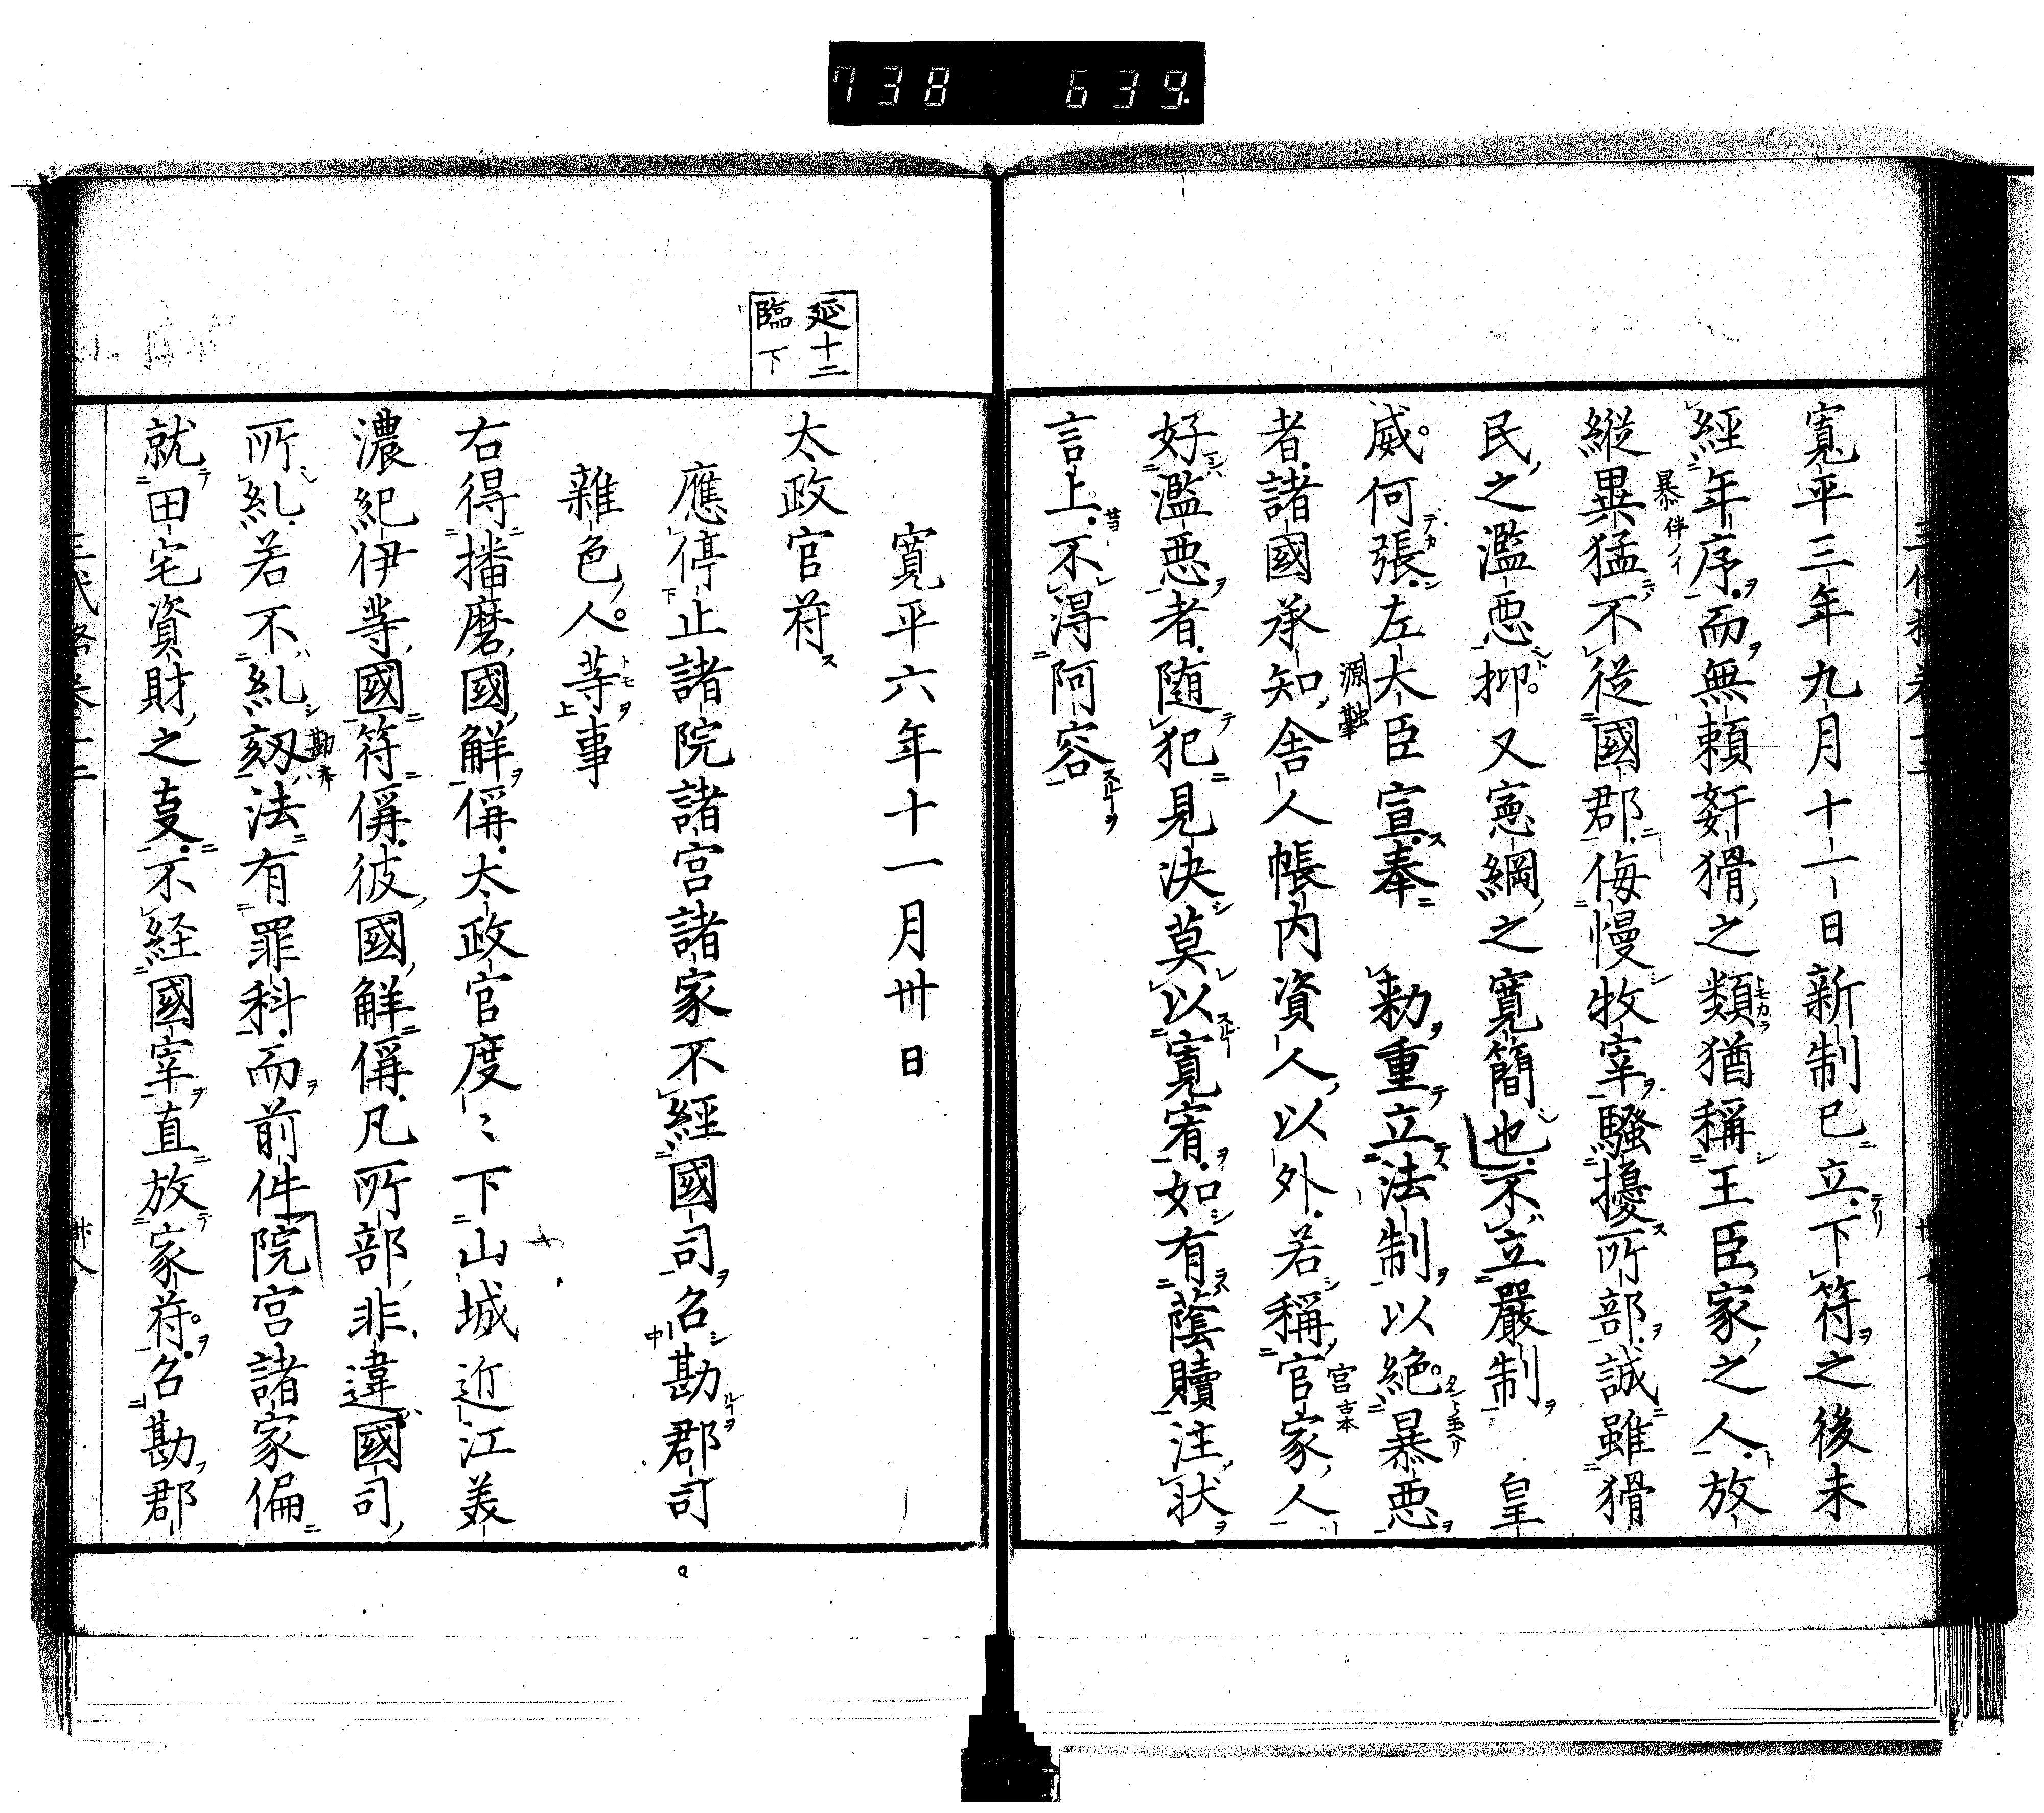 738 639
寛平三年九月十一日新制已立下符之後未
經年序而無頼姧猾之類猶稱王臣家之人放
縦異猛不從國郡侮慢牧宰騷擾所部誠雖猾
暴伴ノイ
民之濫悪抑又憲綱之寛簡也不立嚴制 皇
威何張左大臣宣奉 勅重立法制以絶暴悪
源融
者諸國承知舎人帳内資人以外若稱官家人
宮古本
好濫悪者随犯見决莫以寛宥如有蔭贖注状
言上不淂阿容
寛平六年十一月卅日
延十二
臨下
太政官符
應停止諸院諸宮諸家不經國司召勘郡司
雜色人等事
右得播磨國解偁太政官度〻下山城近江美
濃紀伊等國符偁彼國解偁凡所部非違國司
所糺若不糺劾法有罪科而前件院宮諸家偏
就田宅資財之叓不経國宰直放家符召勘郡
三代格卷十二